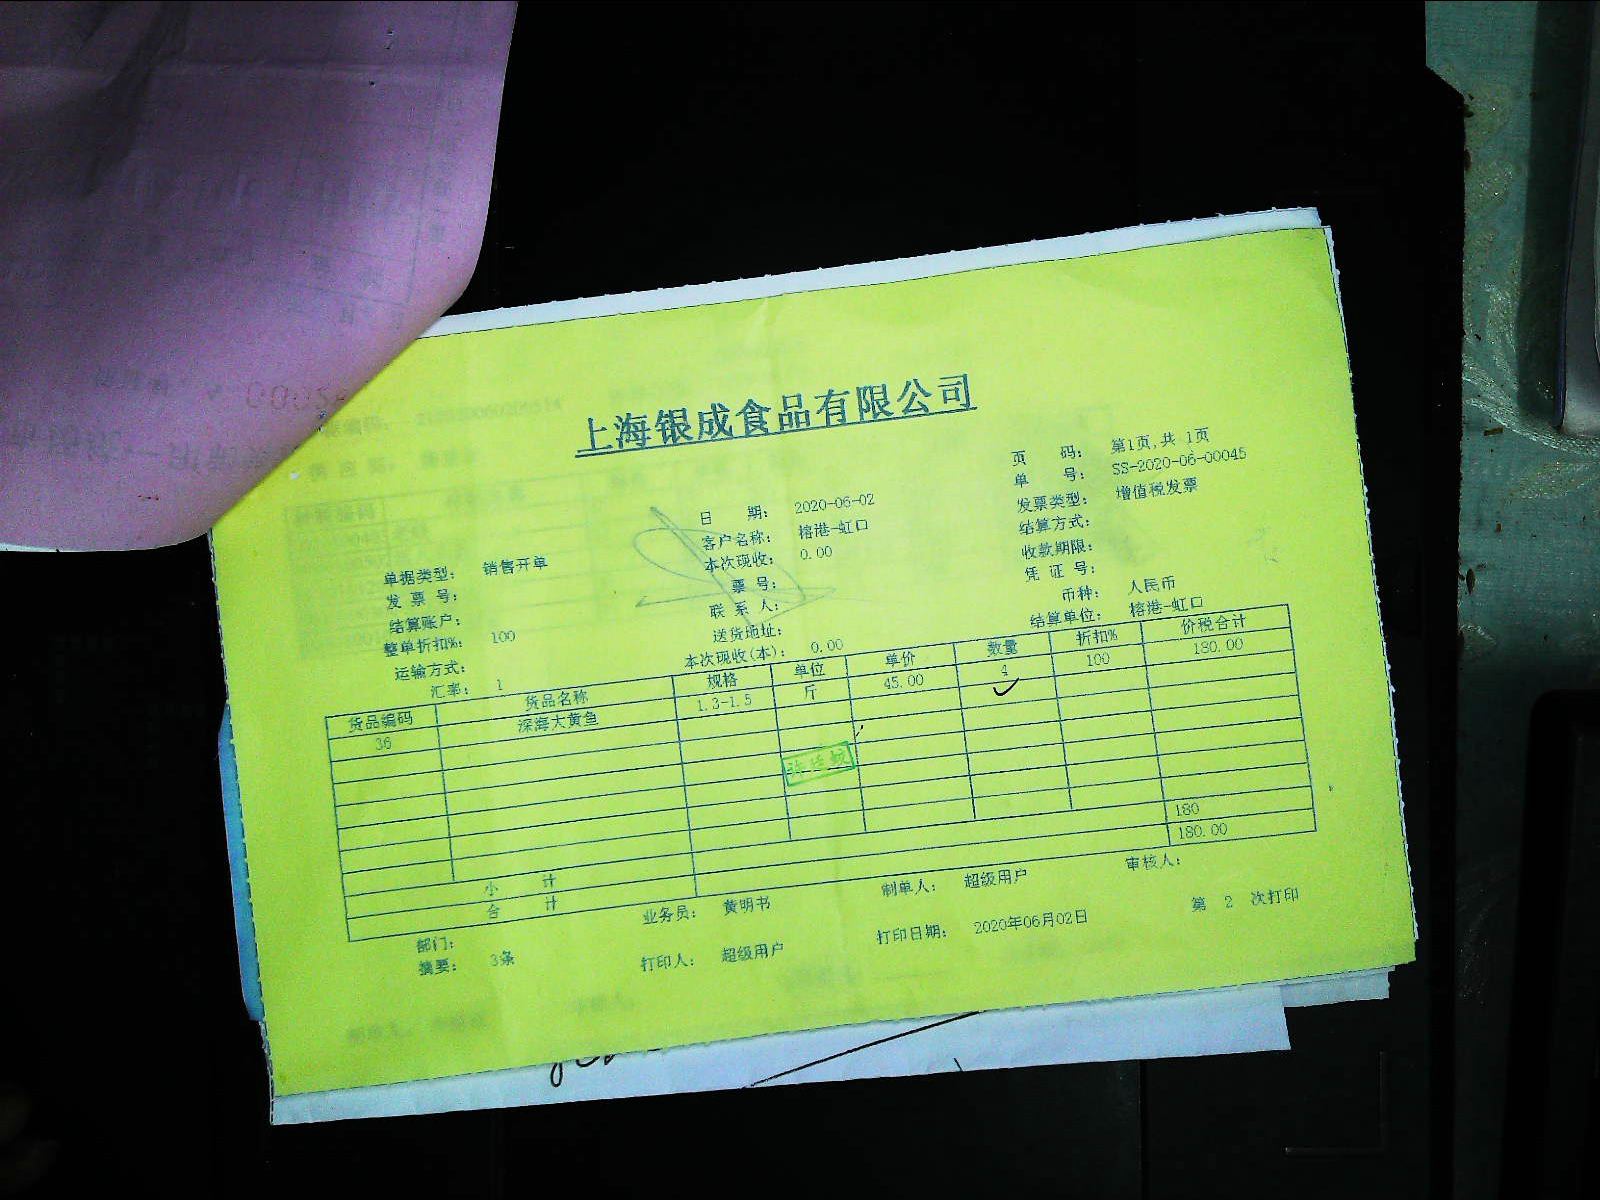 上海银成食品有限公司
页 码： 第1页,共 1页
单 号： SS-2020-06-00045
日 期： 2020-06-02 发票类型： 增值税发票
单据类型： 销售开单 客户名称： 榕港-虹口 结算方式：
发 票 号： 本次现收： 0.00 收款期限：
结算账户： 票 号： 凭 证 号：
整单折扣%： 100 联 系 人： 币种： 人民币
运输方式： 送货地址： 结算单位： 榕港-虹口
汇率： 1 本次现收(本)： 0.00
货品编码 货品名称 规格 单位 单价 数量 折扣% 价税合计
36 深海大黄鱼 1.3-1.5 斤 45.00 4 100 180.00
小 计 180
合 计 180.00
部门： 业务员： 黄明书 制单人： 超级用户 审核人：
摘要： 3条 打印人： 超级用户 打印日期： 2020年06月02日 第 2 次打印